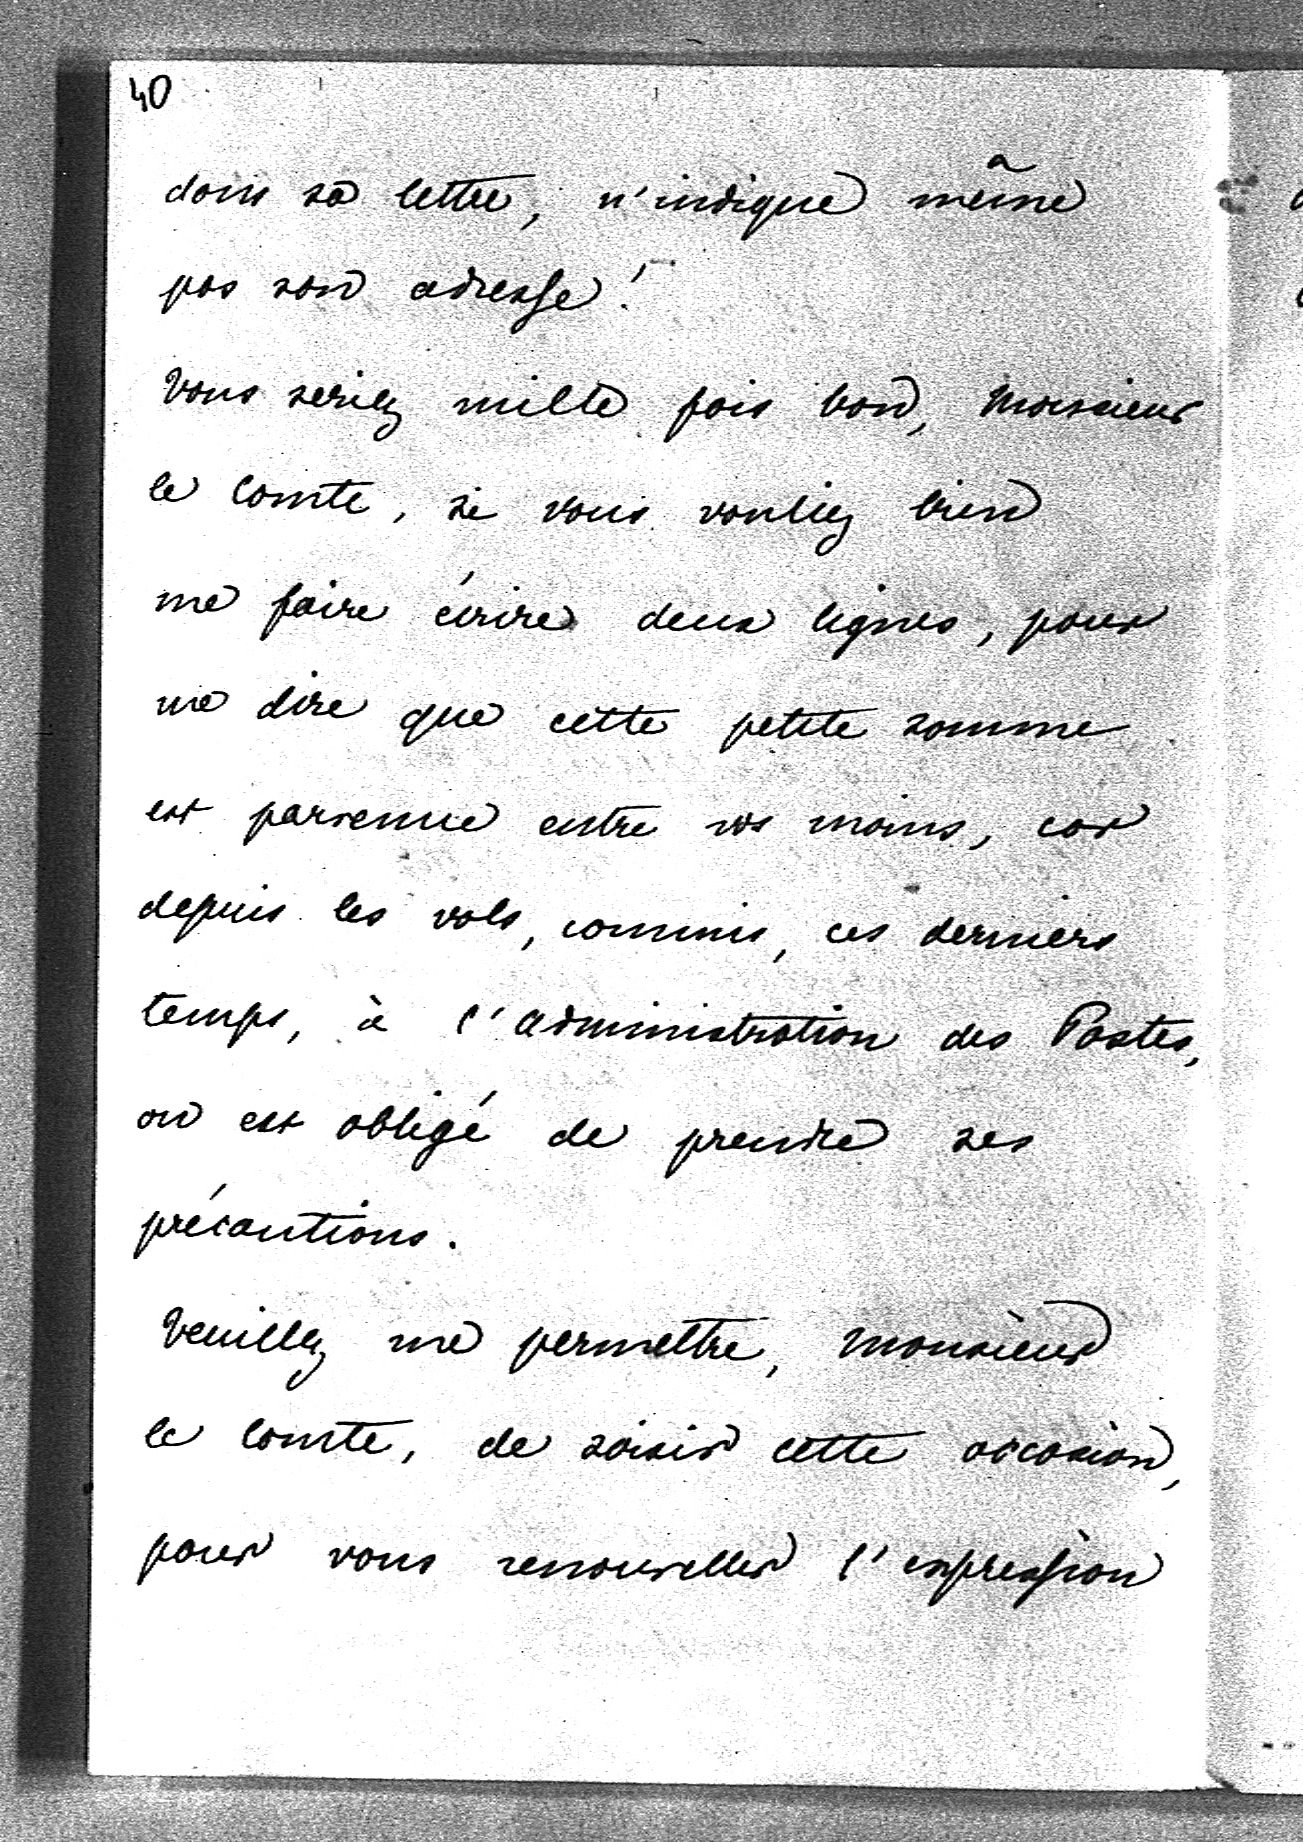 40
dans sa lettre, n'indique même
pas son adresse !
Vous seriez mille fois bon, Monsieur
le Comte, si vous vouliez bien
me faire écrire deux lignes, pour
me dire que cette petite somme
est parvenue entre vos mains, car
depuis les vols, commis, ces derniers
temps, à l'administration des Postes,
on est obligé de prendre ses
précautions.
Veuillez me permettre, Monsieur
le Comte, de saisir cette occasion,
pour vous renouveller l'expression